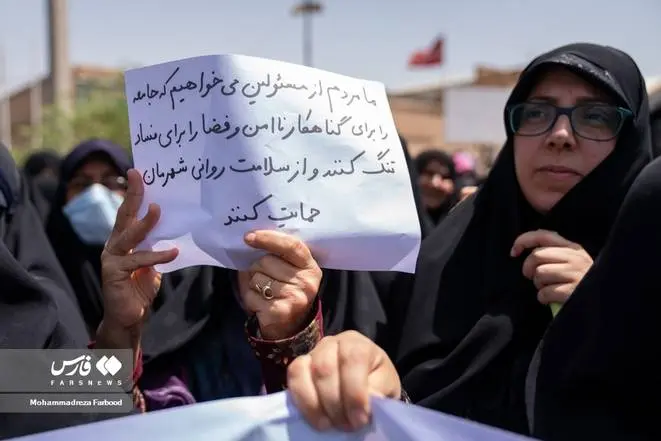 ما مردم از مسئولین می‌خواهیم که جامعه
را برای گناهکار ناامن و فضا را برای فساد
تنگ کنند و از سلامت روانی شهرمان
حمایت کنند
فارس
FARSNEWS
Mohammadreza Farbood